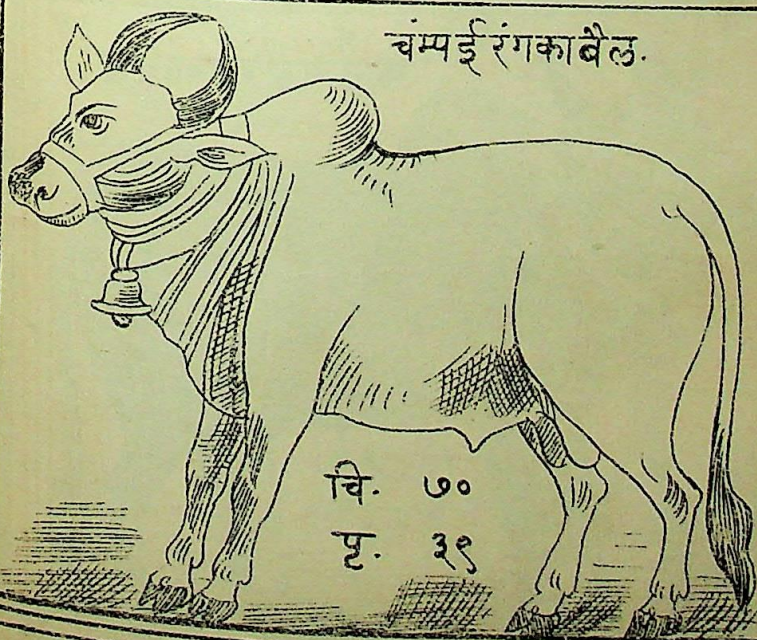 चंम्पई रंगका बैल.
चि. ७०
पृ. ३९